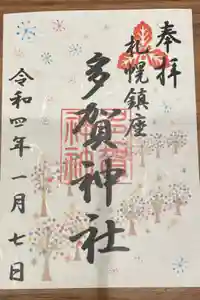 奉拝
札幌鎮座
多賀神社
令和四年一月七日